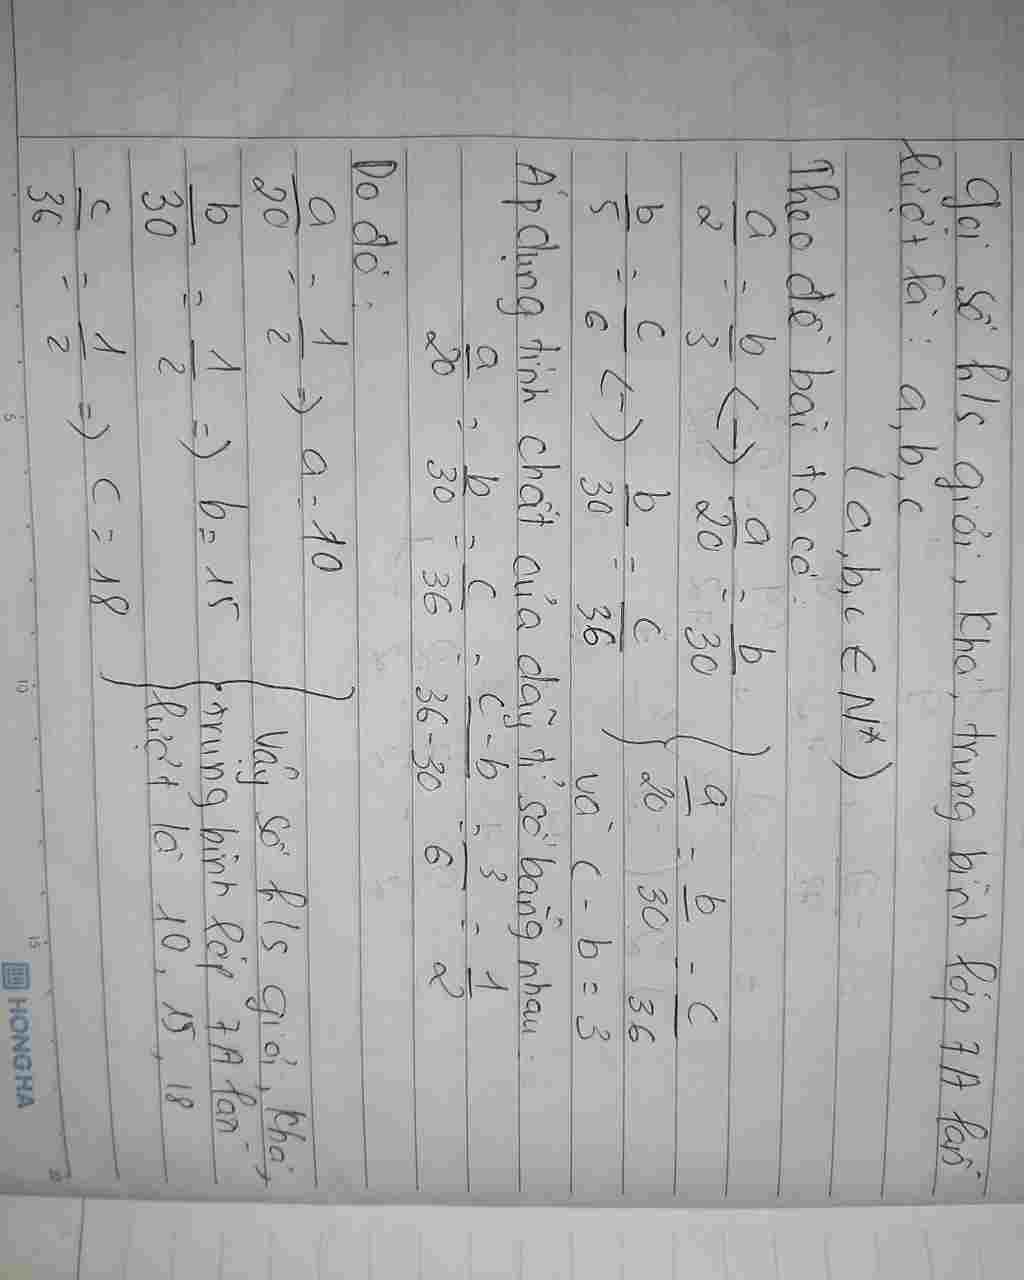 Gọi số hls giỏi, khá, trung bình lớp 7A lần
lượt là : a, b, c
( a, b, c ∈ N*)
Theo đề bài ta có:
a/2 = b/3 <-> a/20 = b/30 } a/20 = b/30 = c/36
b/5 = c/6 <-> b/30 = c/36 và c - b = 3
Áp dụng tính chất của dãy tỉ số bằng nhau:
a/20 = b/30 = c/36 = c-b/36-30 = 3/6 = 1/2
Do đó:
a/20 = 1/2 => a = 10
b/30 = 1/2 => b = 15
c/36 = 1/2 => c = 18
} Vậy số hls giỏi, khá,
trung bình lớp 7A lần
lượt là 10, 15, 18
5 10 15 20
HONG HA